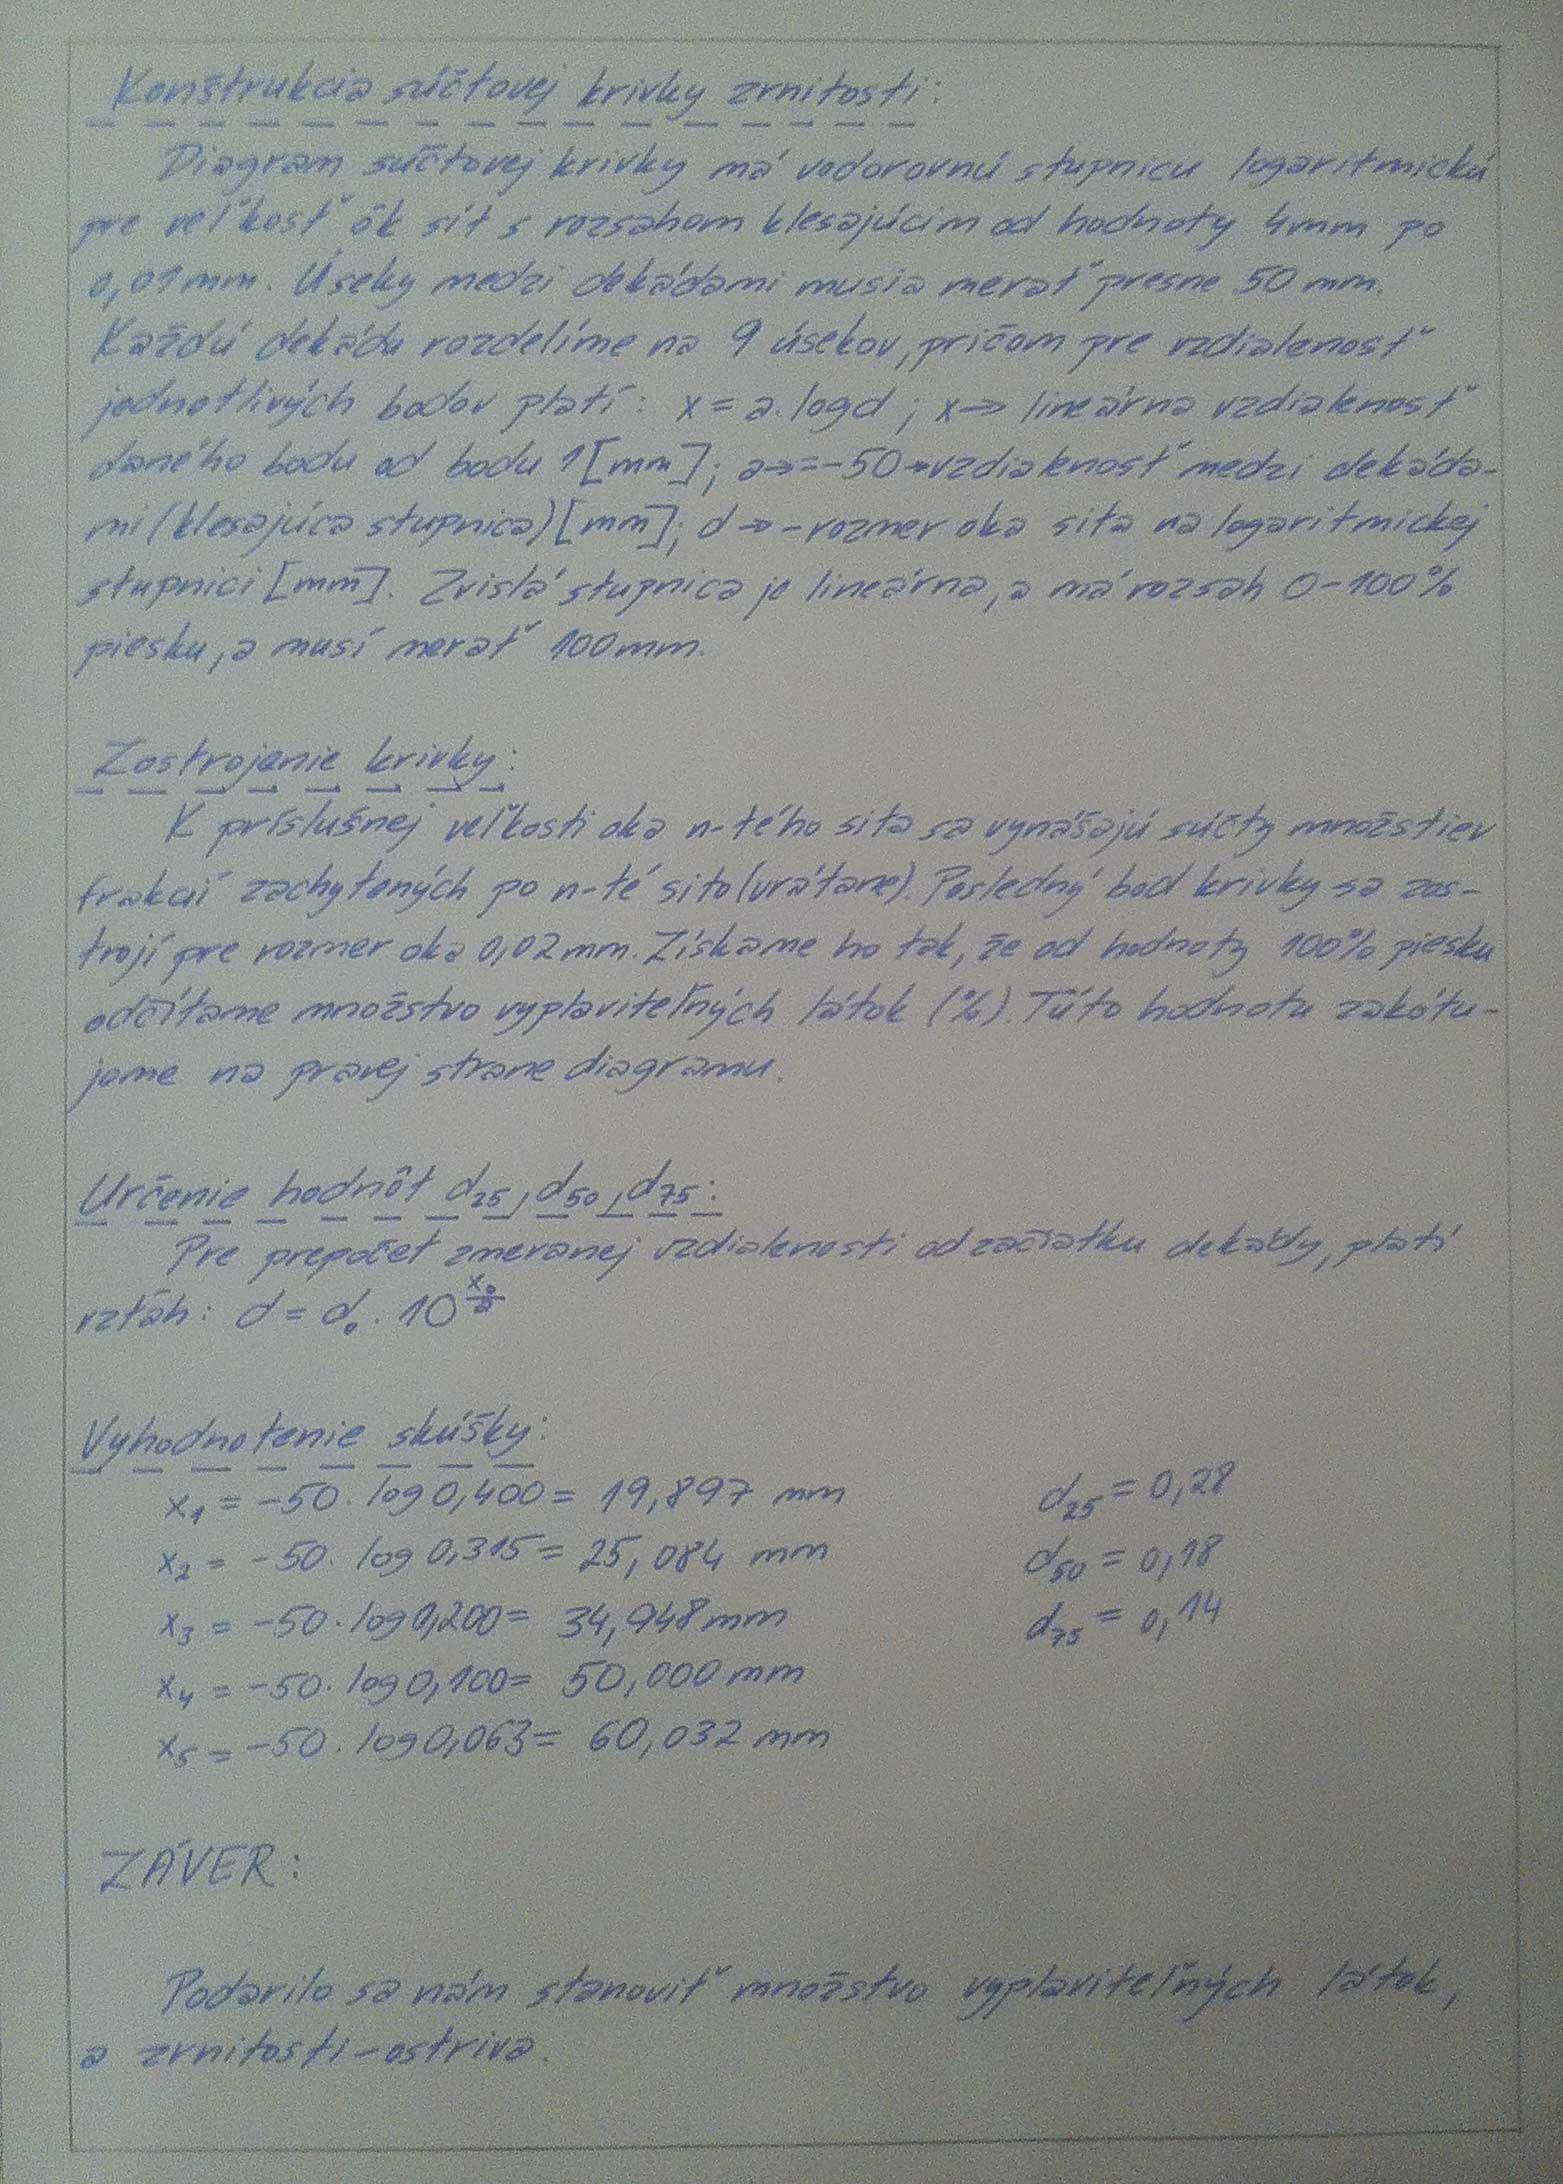 Konštrukcia súčtovej krivky zrnitosti:
Diagram súčtovej krivky má vodorovnú stupnicu logaritmickú
pre veľkosť ôk sít s rozsahom klesajúcim od hodnoty 4mm po
0,01mm. Úseky medzi dekádami musia merať presne 50 mm.
Každú dekádu rozdelíme na 9 úsekov, pričom pre vzdialenosť
jednotlivých bodov platí: x = a.logd ; x→ lineárna vzdialenosť
daného bodu od bodu 1[mm]; a→=-50→vzdialenosť medzi dekáda-
mi (klesajúca stupnica)[mm]; d→-rozmer oka sita na logaritmickej
stupnici [mm]. Zvislá stupnica je lineárna, a má rozsah 0-100%
piesku, a musí merať 100mm.
Zostrojenie krivky:
K príslušnej veľkosti oka n-tého sita sa vynášajú súčty množstiev
frakcií zachytených po n-té sito (vrátane). Posledný bod krivky sa zos-
trojí pre rozmer oka 0,02mm. Získame ho tak, že od hodnoty 100% piesku
odčítame množstvo vyplaviteľných látok (%). Túto hodnotu zakótu-
jeme na pravej strane diagramu.
Určenie hodnôt d₂₅, d₅₀, d₇₅:
Pre prepočet zmeranej vzdialenosti od začiatku dekády, platí
vzťah: d = d₀ . 10^(x₀/a)
Vyhodnotenie skúšky:
x₁ = -50. log 0,400 = 19,897 mm d₂₅ = 0,28
x₂ = -50. log 0,315 = 25,084 mm d₅₀ = 0,18
x₃ = -50. log 0,200 = 34,948 mm d₇₅ = 0,14
x₄ = -50. log 0,100 = 50,000 mm
x₅ = -50. log 0,063 = 60,032 mm
ZÁVER:
Podarilo sa nám stanoviť množstvo vyplaviteľných látok,
a zrnitosti-ostriva.